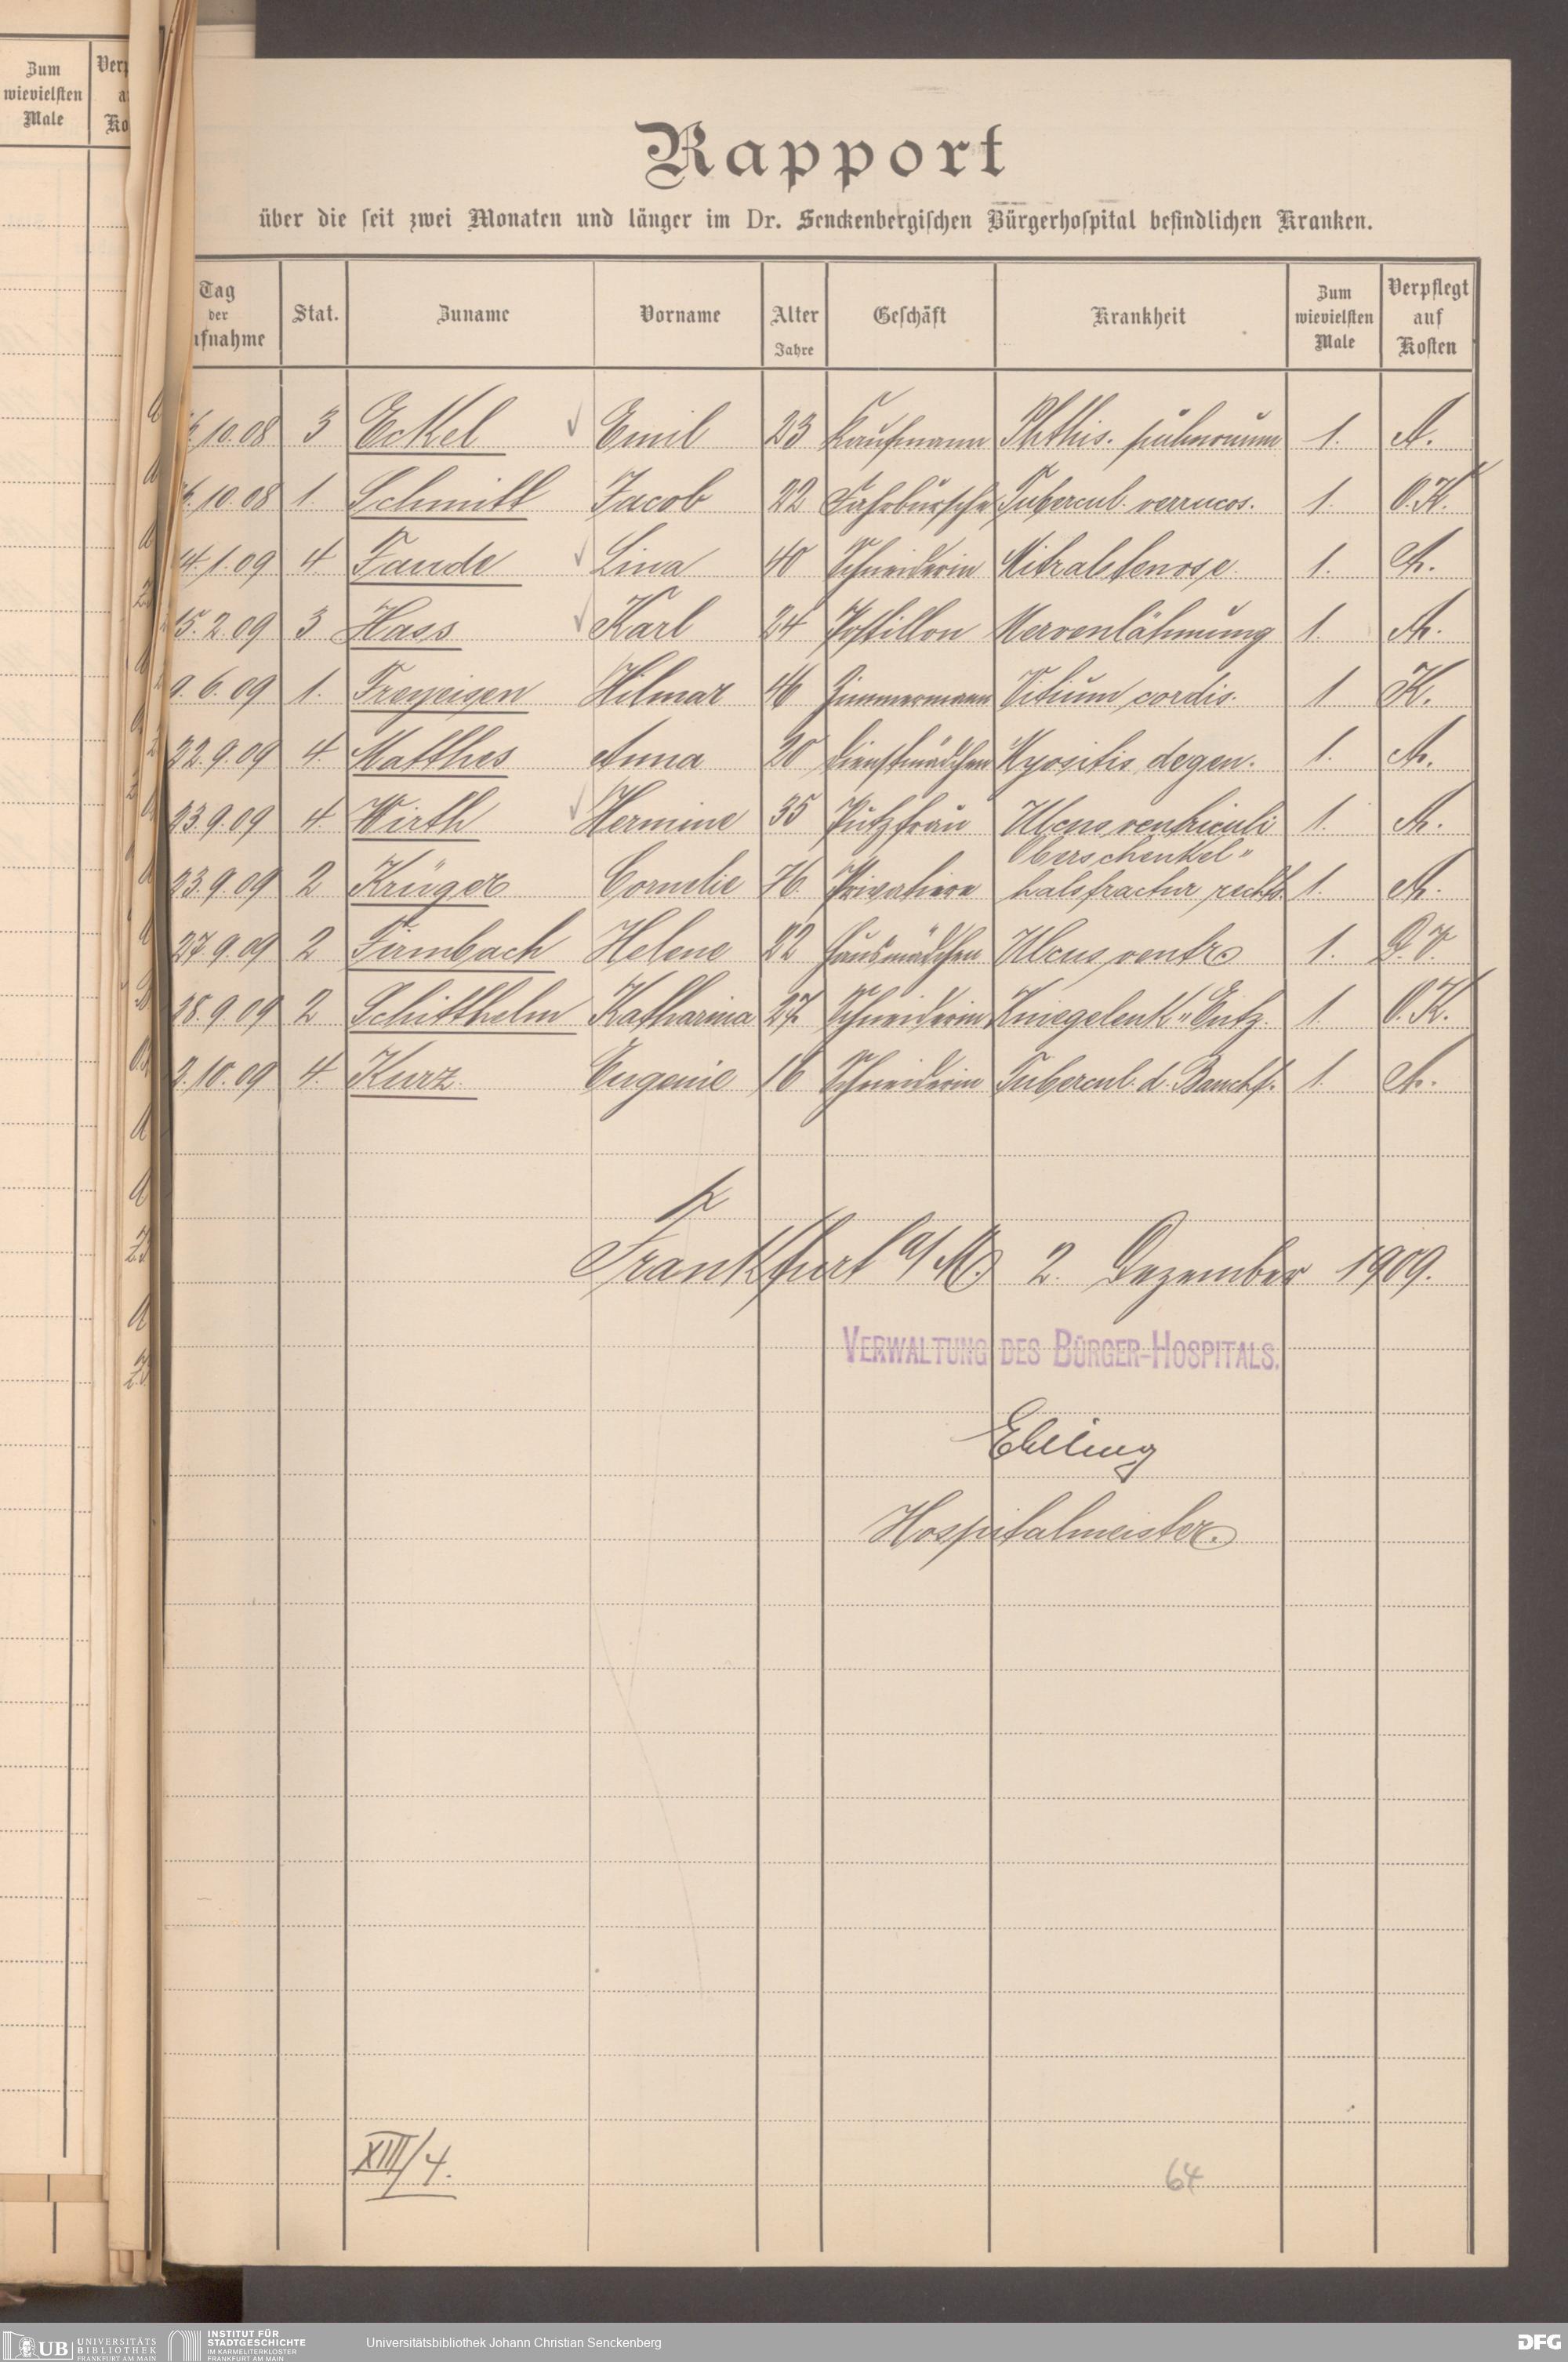 Zum
wievielsten
Male
Rapport
über die seit zwei Monaten und länger im Dr. Senckenbergischen Bürgerhospital befindlichen Kranken.
Tag der Aufnahme Stat. Zuname Vorname Alter Jahre Geschäft Krankheit Zum wievielsten Male Verpflegt auf Kosten
10.08 3 Eckel Emil 23 Kaufmann Phthis. pulmonum 1. A.
10.08 1. Schmitt Jacob 22 Fahrbursche Tubercul. verrucos. 1. O.K.
4.1.09 4. Fande Lina 40 Schneiderin Mitralstenose 1. A.
15.2.09 3 Hass Karl 24 Postillon Nervenlähmung 1. A.
9.6.09 1. Freyeisen Hilmar 46 Zimmermann Vitium cordis. 1 K.
22.9.09 4. Matthes Anna 20 Dienstmädchen Myositis degen. 1. A.
23.9.09 4. Wirth Hermine 35 Putzfrau Ulcus ventriculi 1. A.
Oberschenkel"
23.9.09 2 Krüger Cornelie 76 Privatiere halsfractur rechts. 1. A.
27.9.09 2 Firmbach Helene 22 Hausmädchen Ulcus ventr. 1. D.V.
28.9.09 2 Schitthelm Katharina 27. Schneiderin Kniegelenk" Entz. 1. O.K.
2.10.09 4. Kurz Eugenie 16 Schneiderin Tubercul. d. Bauchf. 1. A.
Frankfurt a/M. 2. Dezember 1909.
VERWALTUNG DES BÜRGER-HOSPITALS.
Ebeling
Hospitalmeister.
XIII/4.
64
UB UNIVERSITÄTS
BIBLIOTHEK
FRANKFURT AM MAIN
INSTITUT FÜR
STADTGESCHICHTE
IM KARMELITERKLOSTER
FRANKFURT AM MAIN
Universitätsbibliothek Johann Christian Senckenberg
DFG